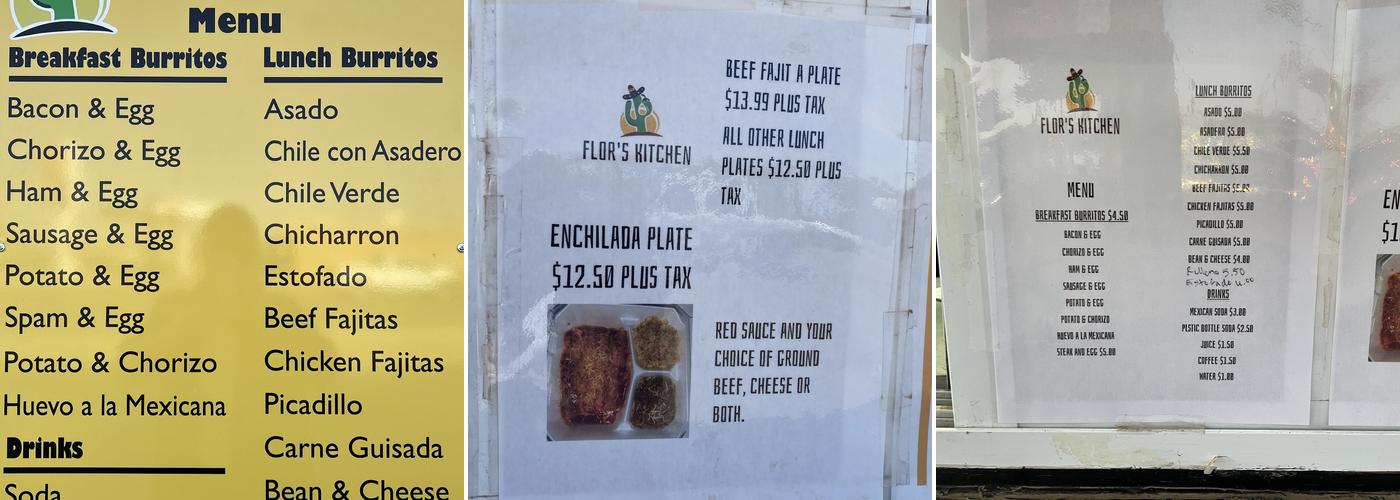 Menu
Breakfast Burritos
Bacon & Egg
Chorizo & Egg
Ham & Egg
Sausage & Egg
Potato & Egg
Spam & Egg
Potato & Chorizo
Huevo a la Mexicana
Drinks
Soda
Lunch Burritos
Asado
Chile con Asadero
Chile Verde
Chicharron
Estofado
Beef Fajitas
Chicken Fajitas
Picadillo
Carne Guisada
Bean & Cheese
FLOR'S KITCHEN
BEEF FAJIT A PLATE
$13.99 PLUS TAX
ALL OTHER LUNCH
PLATES $12.50 PLUS
TAX
ENCHILADA PLATE
$12.50 PLUS TAX
RED SAUCE AND YOUR
CHOICE OF GROUND
BEEF, CHEESE OR
BOTH.
FLOR'S KITCHEN
MENU
BREAKFAST BURRITOS $4.50
BACON & EGG
CHORIZO & EGG
HAM & EGG
SAUSAGE & EGG
POTATO & EGG
POTATO & CHORIZO
HUEVO A LA MEXICANA
STEAK AND EGG $5.00
LUNCH BURRITOS
ASADO $5.00
ASADERO $5.00
CHILE VERDE $5.50
CHICHARRON $5.00
BEEF FAJITAS
CHICKEN FAJITAS $5.00
PICADILLO $5.00
CARNE GUISADA $5.00
BEAN & CHEESE $4.00
5.50
DRINKS
MEXICAN SODA $3.00
PLSTIC BOTTLE SODA $2.50
JUICE $1.50
COFFEE $1.50
WATER $1.00
EN
$1